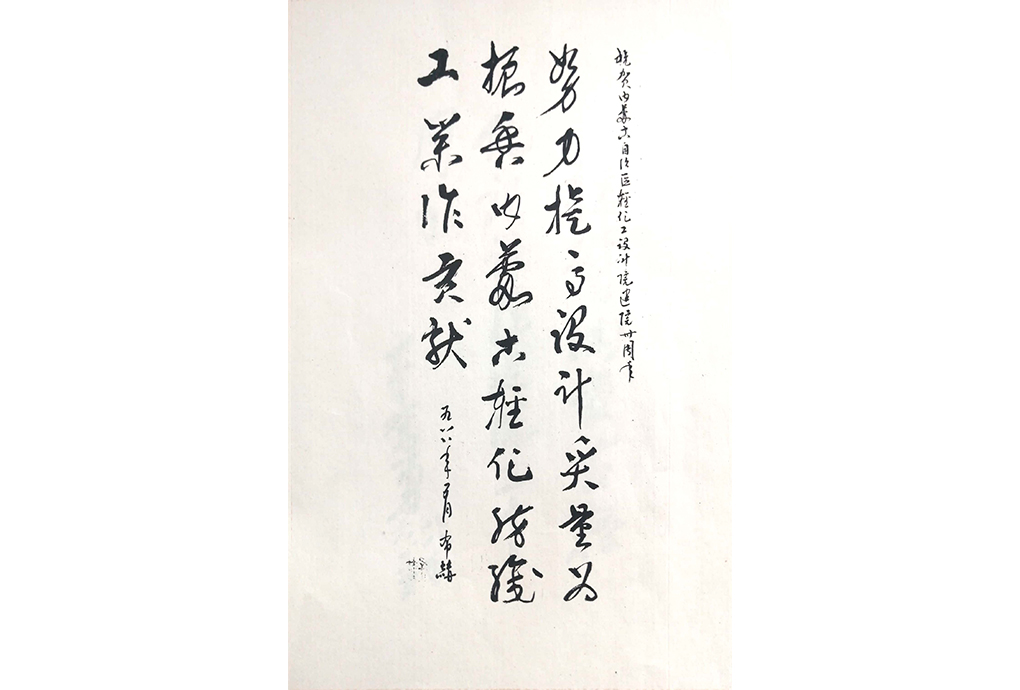 祝贺内蒙古自治区轻化工设计院建院卅周年
努力提高设计质量为
振兴内蒙古轻化纺织
工业作贡献
一九八八年 月 布赫